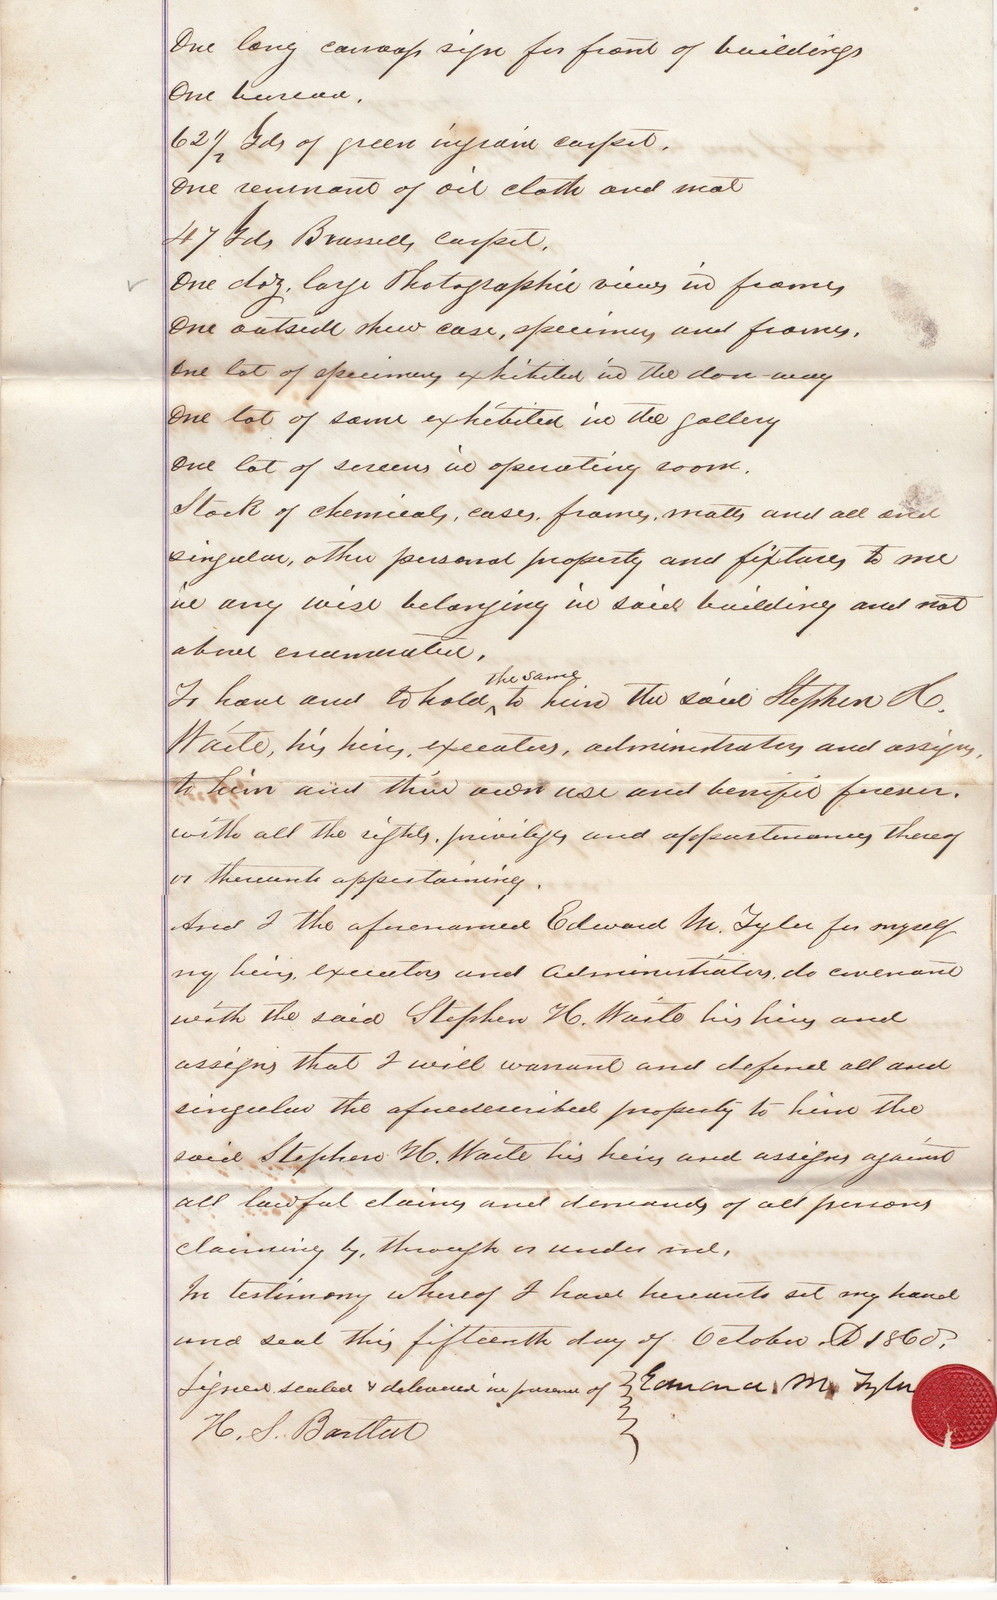 One long canvass sign for front of buildings
One bureau.
62 1/2 Yds of green ingrain carpet.
One remnant of oil cloth and mat
47 Yds Brussells carpet.
One doz. large Photographic views in frames
One outside shew case, specimens and frames.
One lot of specimens exhibited in the door way
One lot of same exhibited in the gallery
One lot of screens in operating room.
Stock of chemicals, cases, frames, matts and all and
singular, other personal property and fixtures to me
in any wise belonging in said building and not
above enumerated.
To have and to hold the same to him the said Stephen H.
Waite, his heirs, executors, administrators and assigns,
to him and their own use and benifit forever.
with all the rights, privileges and appurtenances thereof
or thereunto appertaining.
And I the aforenamed Edward M. Tyler for myself
my heirs, executors and administrators, do covenant
with the said Stephen H. Waite his heirs and
assigns that I will warrant and defend all and
singular the aforedescribed property to him the
said Stephen H. Waite his heirs and assigns against
all lawful claims and demands of all persons
claiming by, through or under me.
In testimony whereof I have hereunto set my hand
and seal this fifteenth day of October AD 1860.
Signed sealed & delivered in presence of Edward M. Tyler
H. S. Bartlett